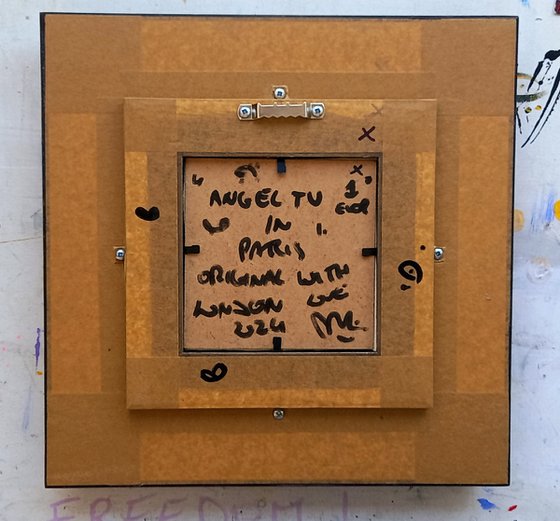 X
X
"ANGEL TU 1
IN EVER
PARIS
ORIGINAL WITH
LONDON LOVE
2024
FREEDOM !